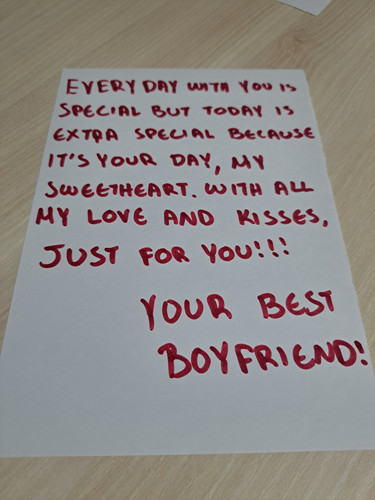 EVERY DAY WITH YOU IS
SPECIAL BUT TODAY IS
EXTRA SPECIAL BECAUSE
IT'S YOUR DAY, MY
SWEETHEART. WITH ALL
MY LOVE AND KISSES,
JUST FOR YOU!!!
YOUR BEST
BOYFRIEND!